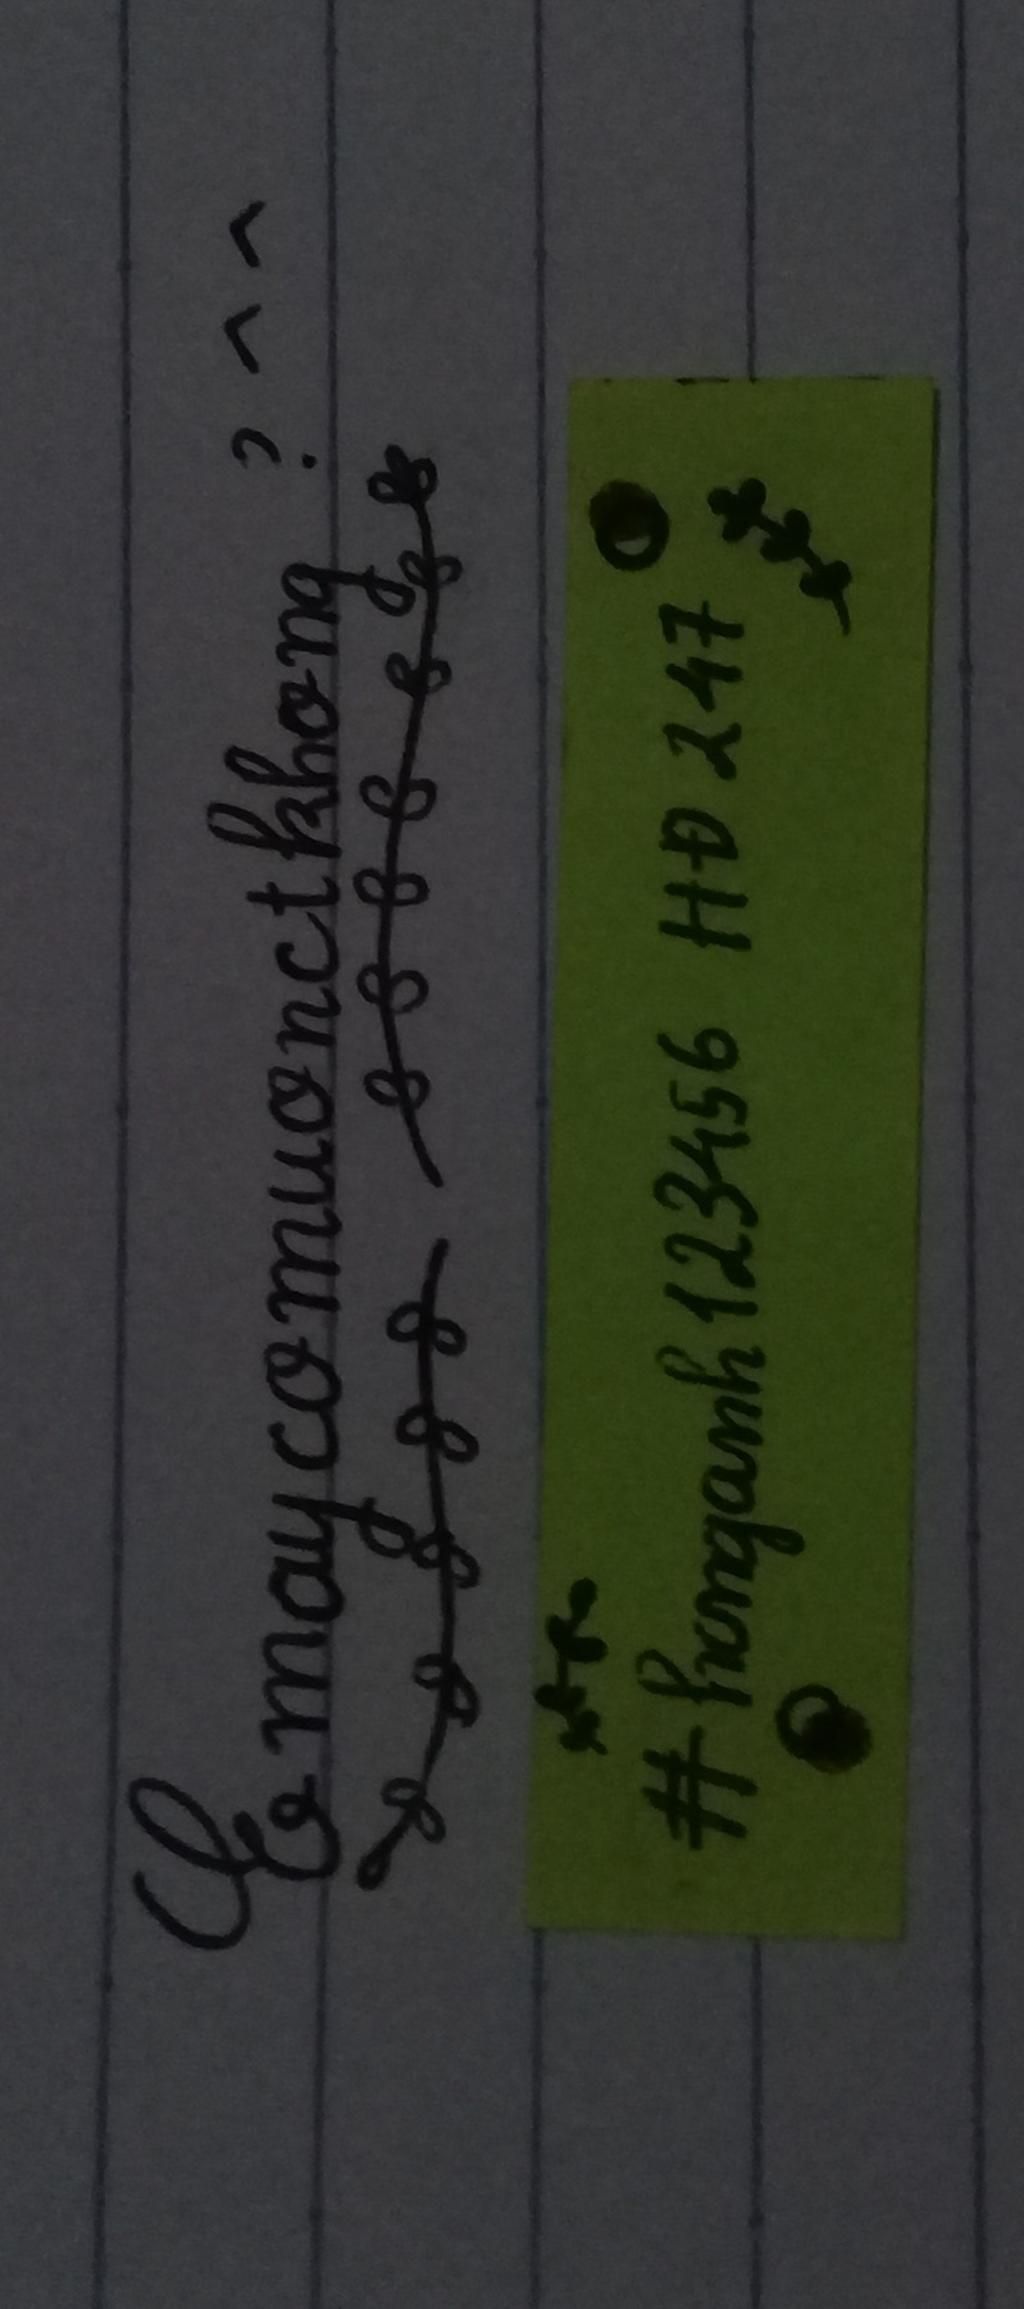 Emaycomuonctkhong ? ^ ^
# honganh123456 HD 247